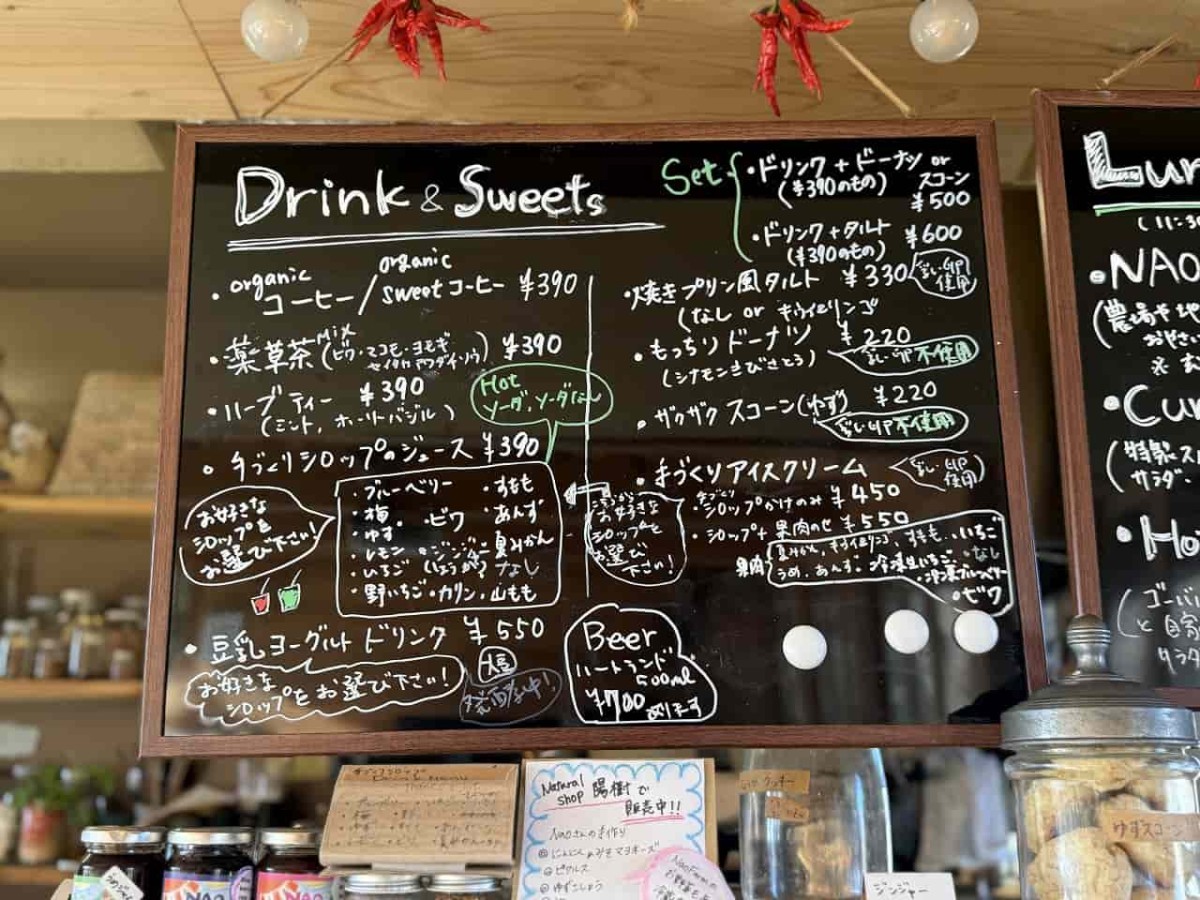 Drink & Sweets
organic コーヒー / organic sweet コーヒー ¥390
・薬草茶 Mix ¥390
・ハーブティー ¥390
(ミント, ホーリーバジル)
Hot
ソーダ, ソーダなし
・手づくりシロップのジュース ¥390
お好きな
シロップを
お選び下さい!
・ブルーベリー ・すもも
・梅 ・ビワ ・あんず
・ゆず ・夏みかん
・レモン ・ジンジャー
・いちご (しょうが) ・なし
・野いちご ・カリン ・山もも
・豆乳ヨーグルトドリンク ¥550
お好きな
シロップをお選び下さい!
Set
・ドリンク+ドーナツ or
スコーン
(¥390のもの)
¥500
・ドリンク+タルト ¥600
(¥390のもの)
・焼きプリン風タルト ¥330
使用
(なし or キウイとリンゴ
・もっちりドーナツ ¥220
(シナモンきびざとう)
不使用
・ザクザクスコーン(ゆず) ¥220
不使用
・手づくりアイスクリーム
使用
・手づくりシロップかけのみ ¥450
・シロップ+果肉のせ ¥550
お好きな
シロップを
お選び
下さい!
果肉
夏みかん, キウイとリンゴ, すもも, ・いちご
うめ, あんず, 冷凍生いちご ・なし
・冷凍ブルーベリー
・ビワ
Beer
ハートランド
500ml
¥700
あります
Lun
(11:3
・NAO
・Cu
サラダ・
・Ho
Natural
shop 陽樹で
販売中!!
Naoさんの手作り
◎にんじんみそマヨネーズ
◎ピクルス
◎ゆずこしょう
NAO
NAO
ゆずスコーン
ジンジャー